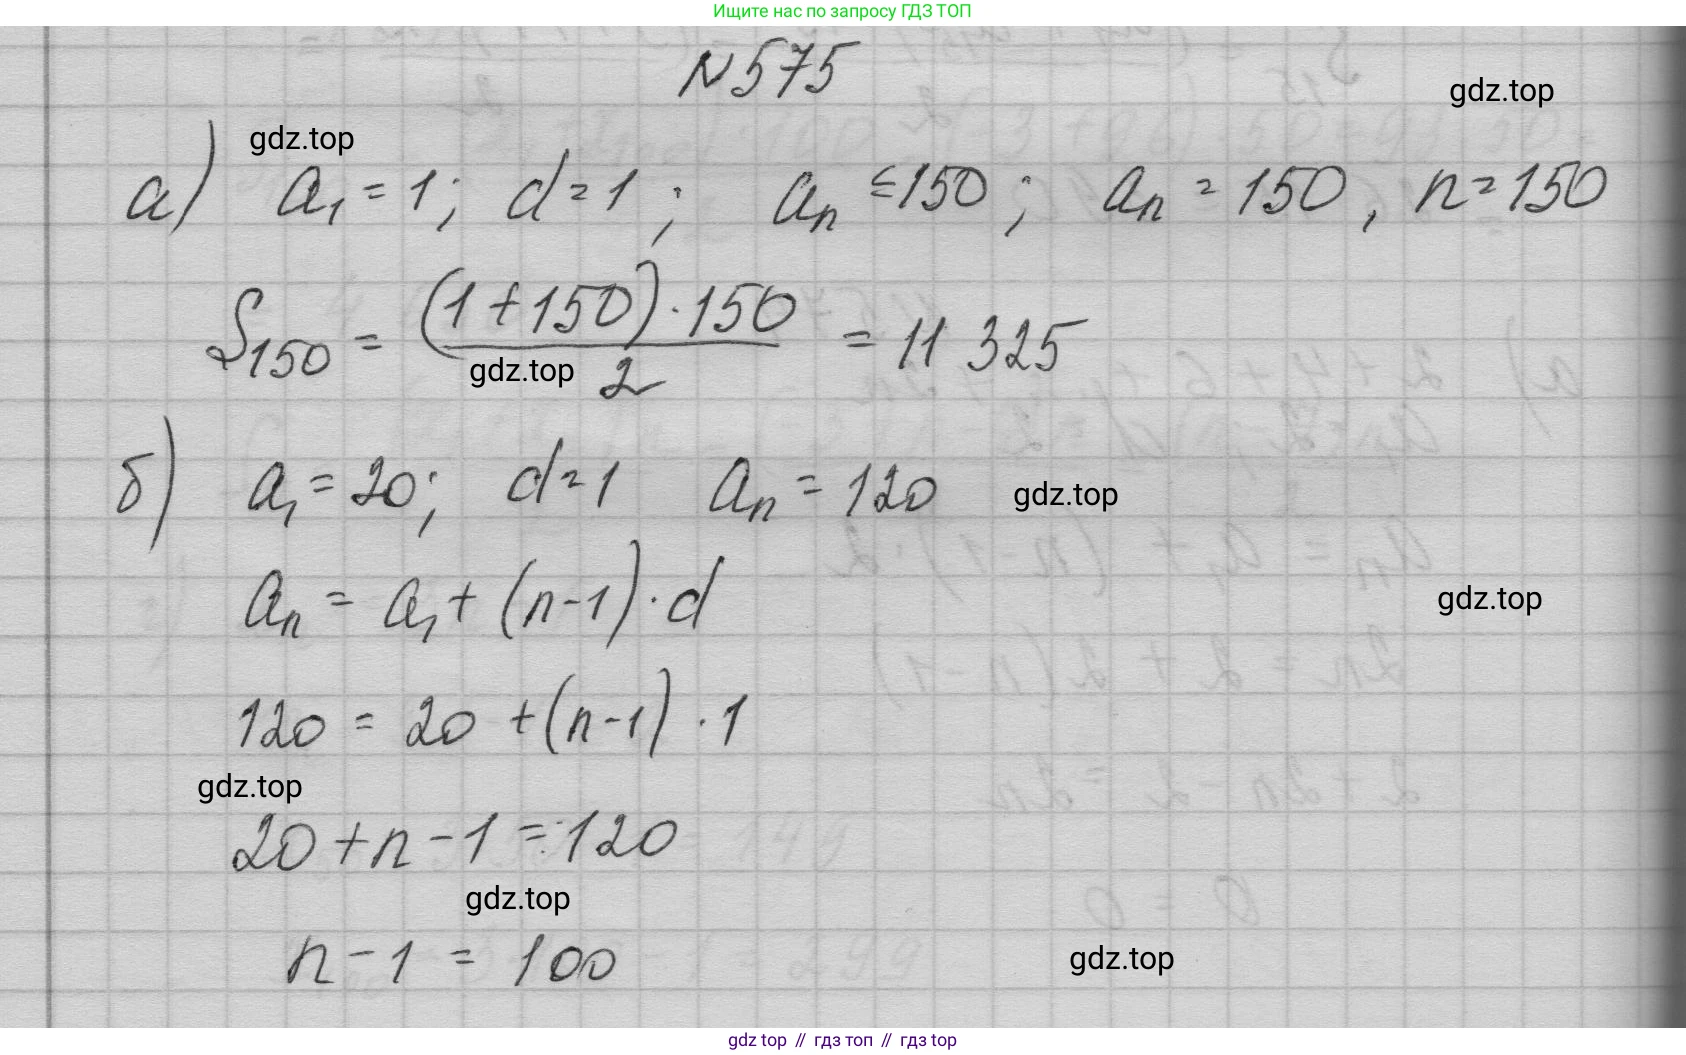 Ищите нас по запросу ГДЗ ТОП
№575
gdz.top
gdz.top
а) a₁ = 1; d = 1; aₙ ≤ 150; aₙ = 150, n = 150
S₁₅₀ = (1 + 150) · 150 / 2 = 11 325
gdz.top
б) a₁ = 20; d = 1 aₙ = 120
gdz.top
aₙ = a₁ + (n - 1) · d
gdz.top
120 = 20 + (n - 1) · 1
gdz.top
20 + n - 1 = 120
gdz.top
n - 1 = 100
gdz.top
gdz top // гдз топ // гдз top